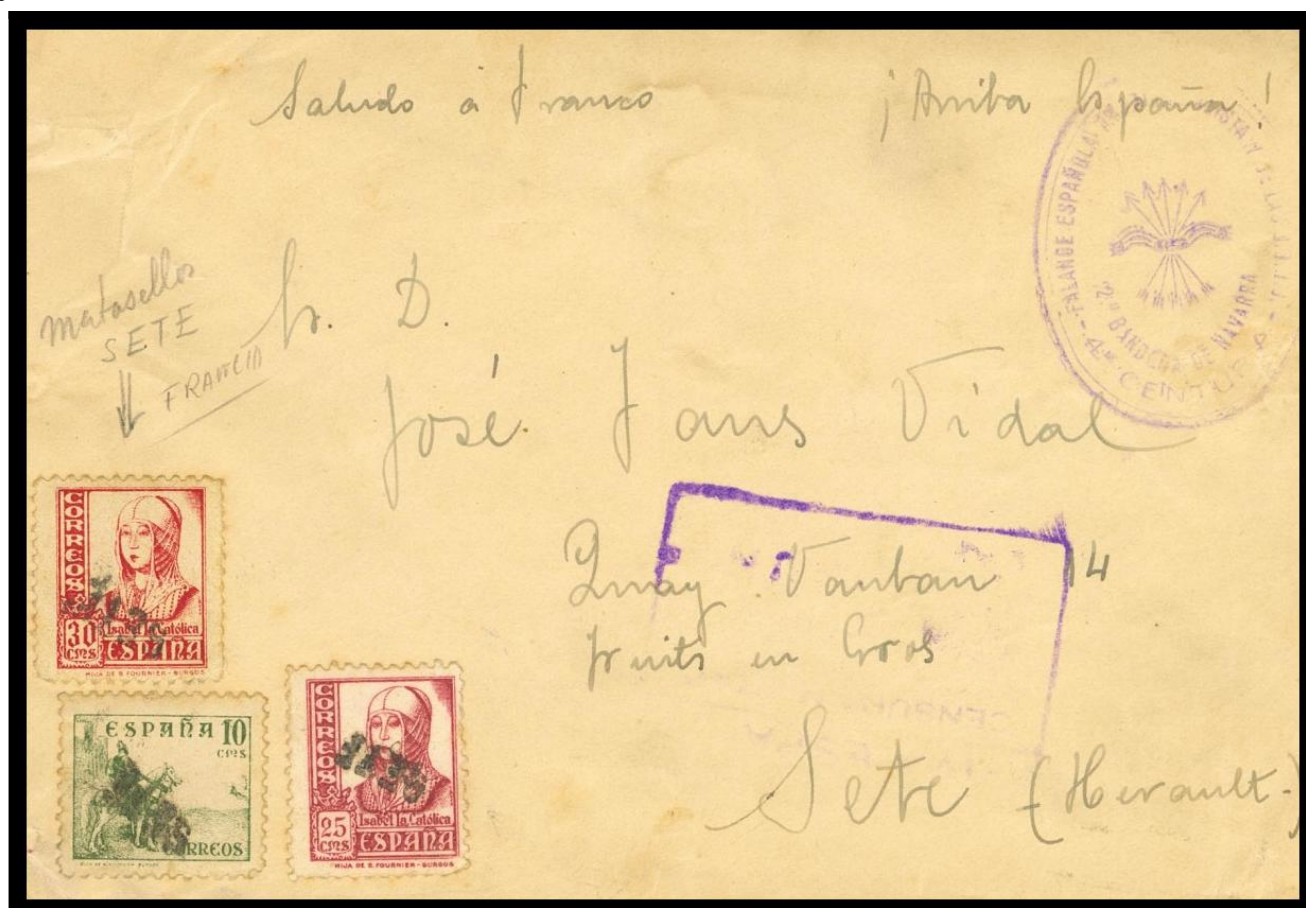 Saludo á Franco ¡Arriba España!
FALANGE ESPAÑOLA
2ª BANDERA DE NAVARRA
4ª CENTURIA
matasellos
SETE
FRANCIA
Sr. D.
José Jans Vidal
Quay Vauban 14
fruits en Gros
Sete (Herault-)
CENSURA
CORREOS
30
CTMS
Isabel la Católica
ESPAÑA
HIJA DE B. FOURNIER - BURGOS
SETE
ESPAÑA 10
CMS
CORREOS
CORREOS
25
CTMS
Isabel la Católica
ESPAÑA
HIJA DE B. FOURNIER - BURGOS
SETE